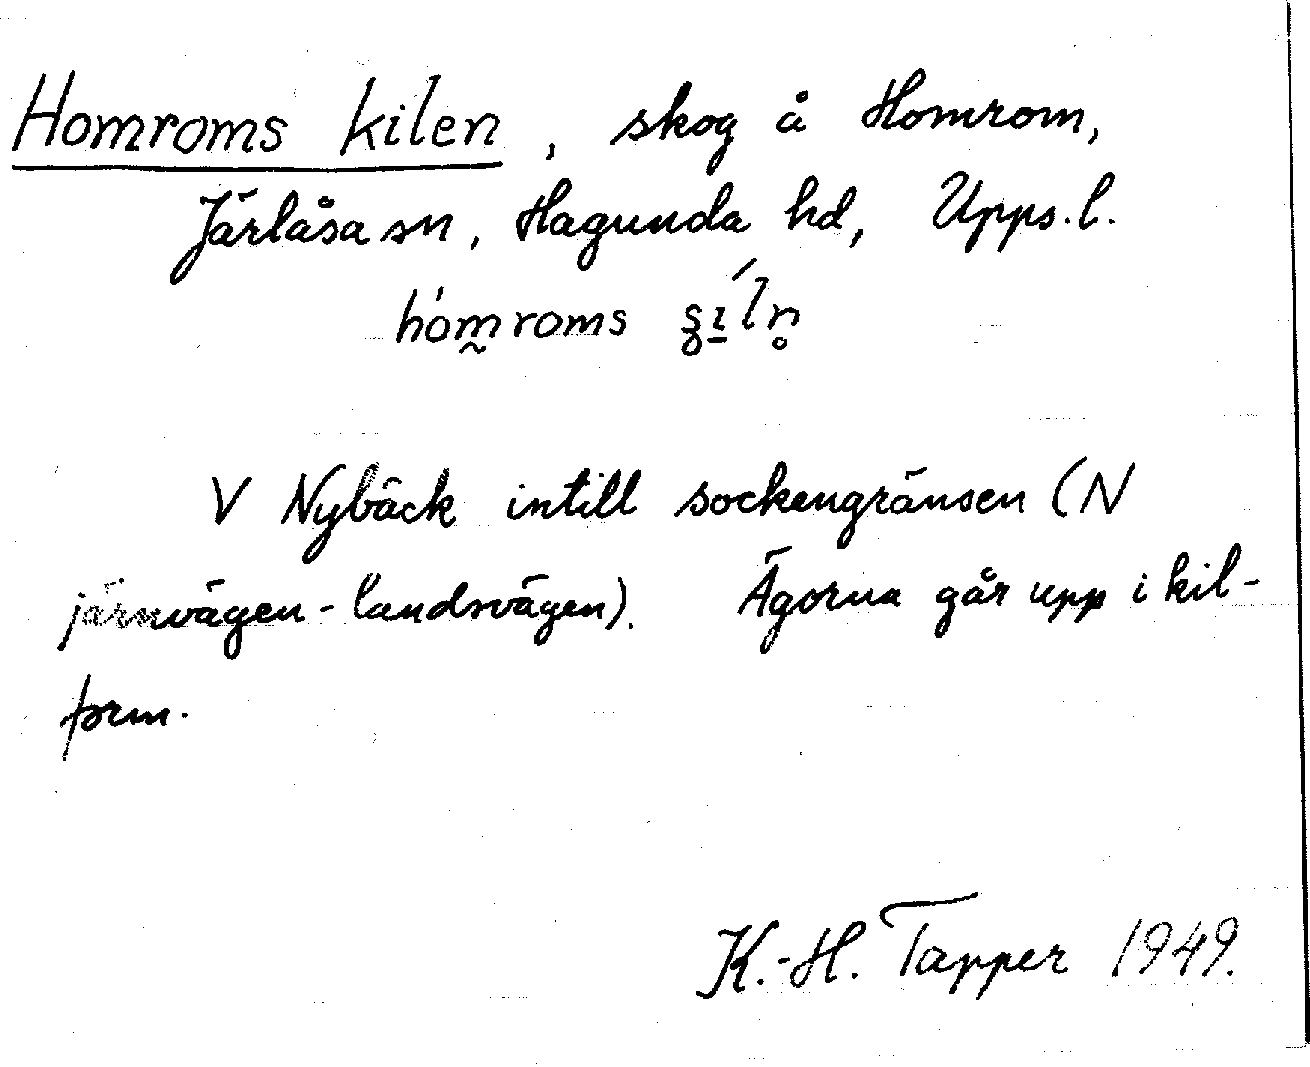 Homroms kilen, skog å Homrom,
Järlåsa sn, Hagunda hd, Upps. l.
hòm̰roms
V Nybäck intill sockengränsen (N
järnvägen - landsvägen). Ägorna går upp i kil-
form.
K.-H. Tapper 1949.